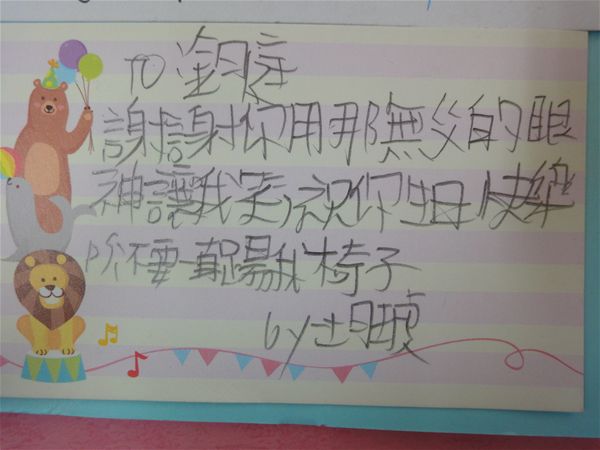 TO
謝謝你用那無父的眼
神讓我笑,祝你生日快樂
不要一直踢我椅子
by